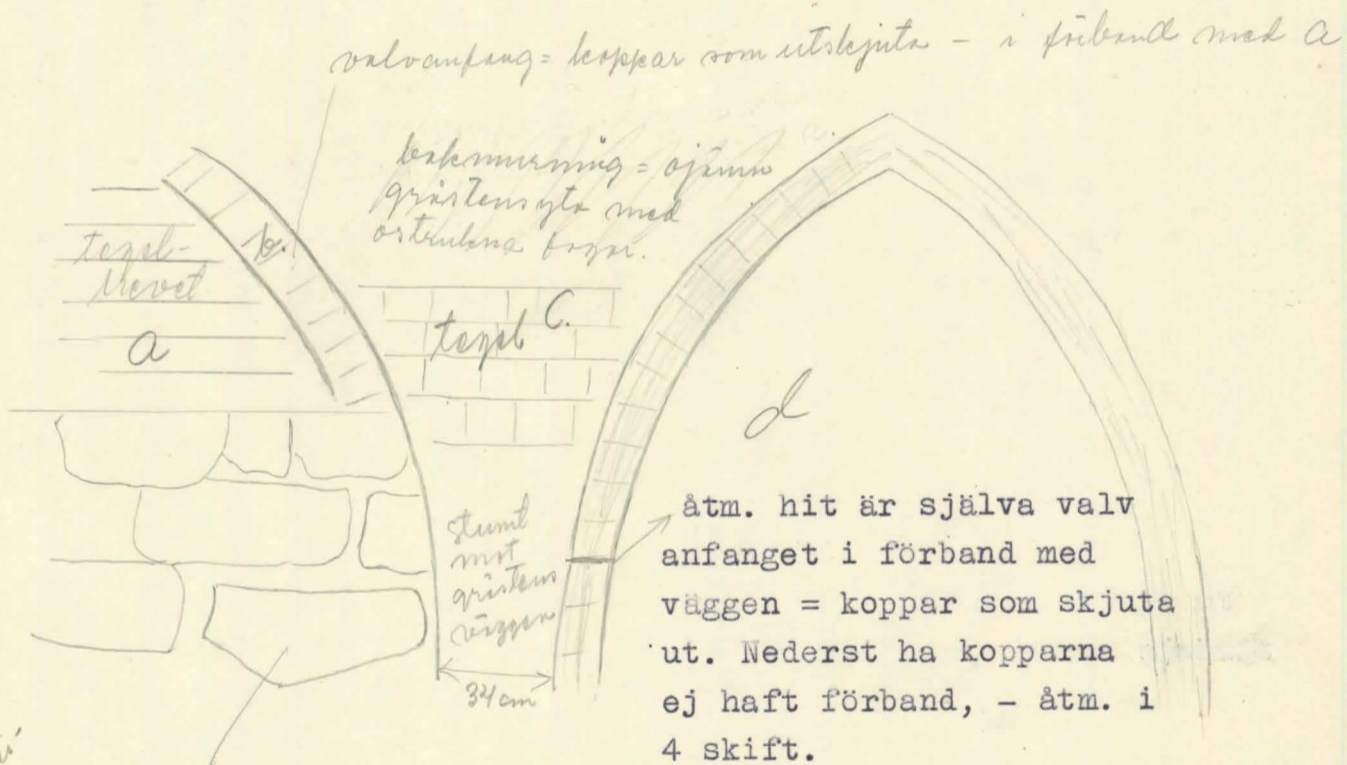 valvanfang = koppar som utskjuta - i förband med a
bakmurning = ojämn
gråstensyta med
ostrukna fogar.
a.
b.
tegel-
a
tegel C.
d
stumt
mot
gråstens
väggen
34 cm
åtm. hit är själva valv
anfanget i förband med
väggen = koppar som skjuta
ut. Nederst ha kopparna
ej haft förband, - åtm. i
4 skift.